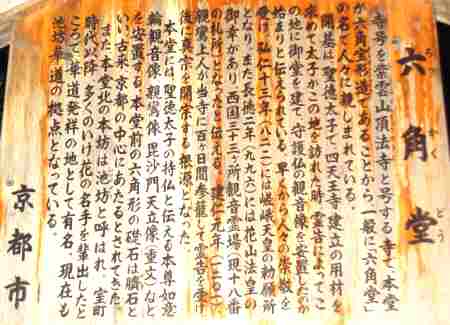 六角堂
ろっかくどう
寺号を紫雲山頂法寺と号する寺で、本堂
が六角形造であることから、一般に「六角堂」
の名で人々に親しまれている。
開基は、聖徳太子で、四天王寺建立の用材を
求めて太子がこの地を訪れた時、霊告によってこ
の地に御堂を建て、守護仏の観音像を安置したのが
始まりと伝えられている。早くから人々の崇敬を
受け、弘仁十三年(八二二)には嵯峨天皇の勅願所
となり、また長徳二年(九九六)には花山法皇の
御幸があり、西国三十三ヶ所観音霊場(現十八番
の札所)となったと伝える。建仁元年(一二〇一)
親鸞上人が当寺に百ヶ日間参籠して霊告を受け
後に真宗を開宗する根源となった。
本堂には、聖徳太子の持仏と伝える本尊如意
輪観音像、親鸞像、毘沙門天立像(重文)など
を安置する。本堂前の六角形の礎石は臍石と
いい、古来、京都の中心にあたるとされてきた。
また、本堂北の本坊は池坊と呼ばれ、室町
時代以降、多くのいけ花の名手を輩出したと
ころで、華道発祥の地として有名。現在も
池坊華道の拠点となっている。
京都市